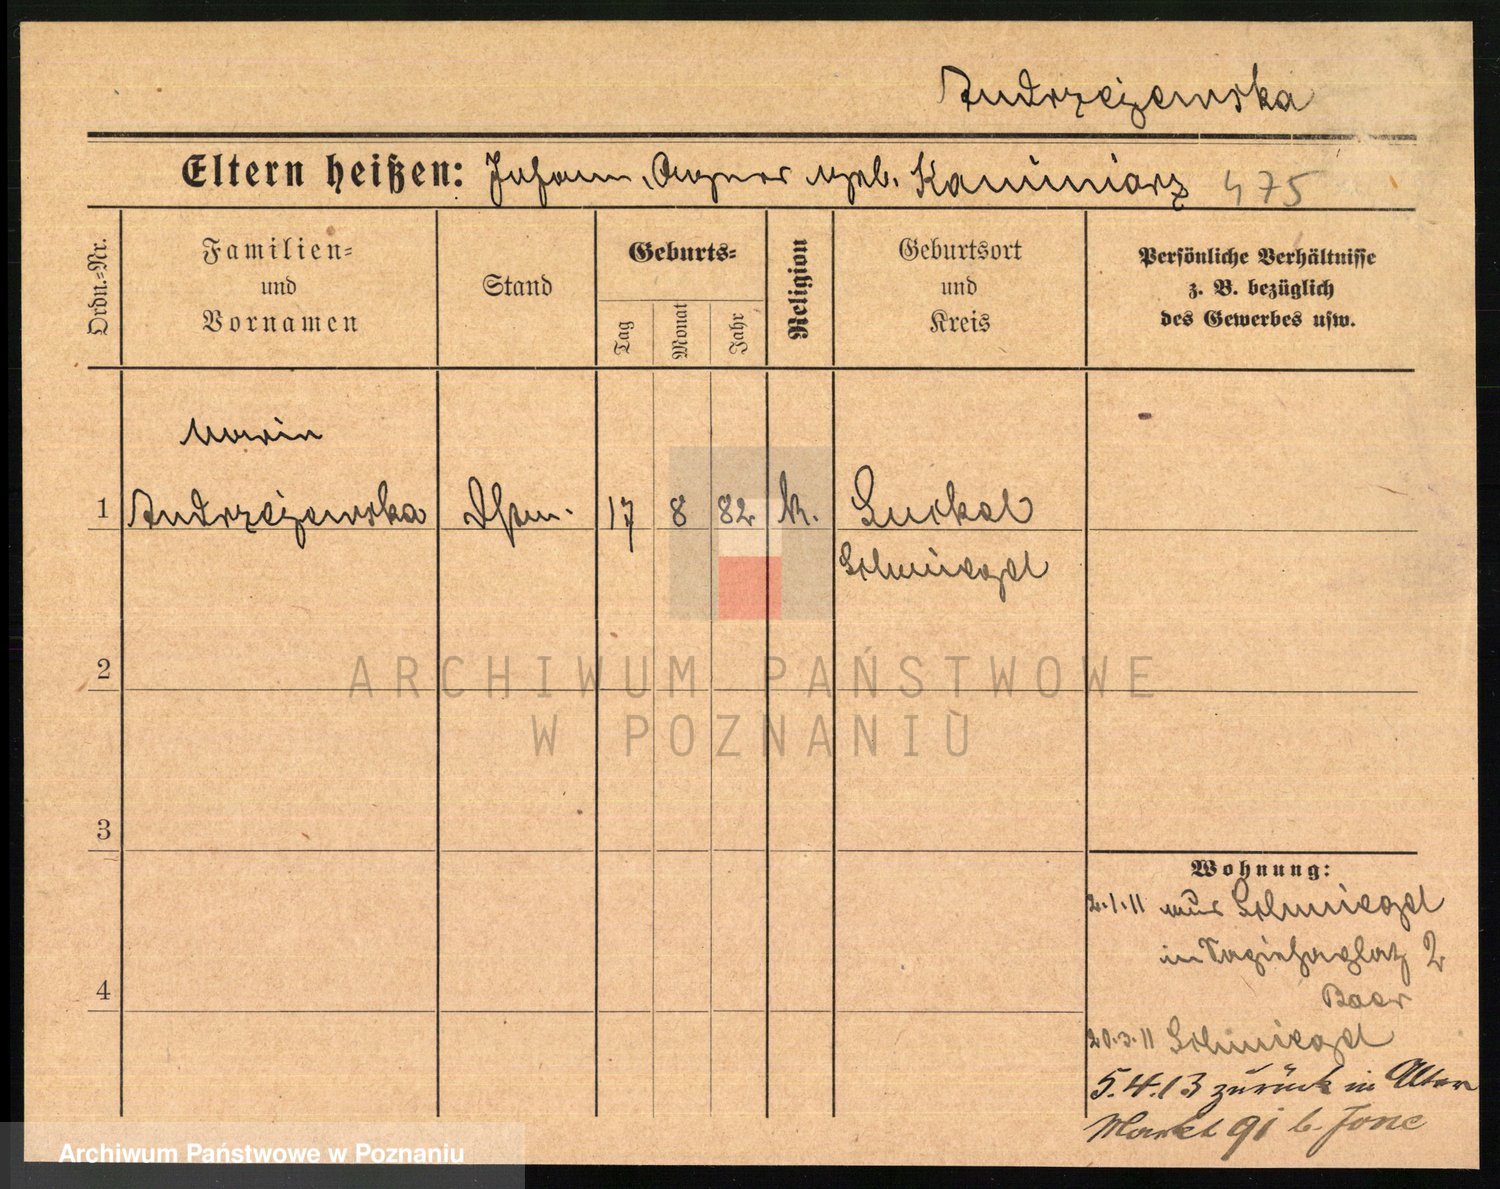 Andrzejewska
Eltern heißen: Johann, Agnes geb. Kaminiarz 475
Ordn.-Nr.
Familien-
und
Vornamen
Stand
Geburts-
Tag
Monat
Jahr
Religion
Geburtsort
und
Kreis
Persönliche Verhältnisse
z. B. bezüglich
des Gewerbes usw.
Maria
1 Andrzejewska 17 8 82 k.
Schmiegel
2
ARCHIWUM PAŃSTWOWE
W POZNANIU
3
Wohnung:
2.1.11 aus Schmiegel
in Sapiehaplatz 2
Baer
4
20.3.11 Schmiegel
5.4.13 zurück in Alter
Markt 91 b.
Archiwum Państwowe w Poznaniu